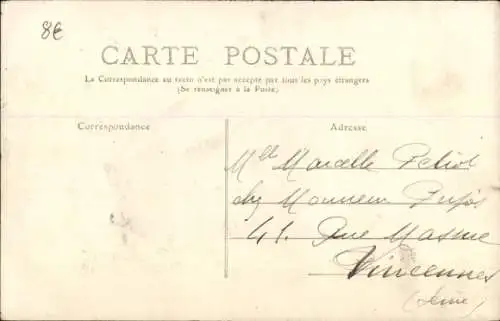 8€
CARTE POSTALE
La Correspondance au recto n'est pas acceptée par tous les pays étrangers
(Se renseigner à la Poste)
Correspondance
Adresse
Mlle Marcelle Petiot
chez Monsieur
41. Rue
Vincennes
(Seine)